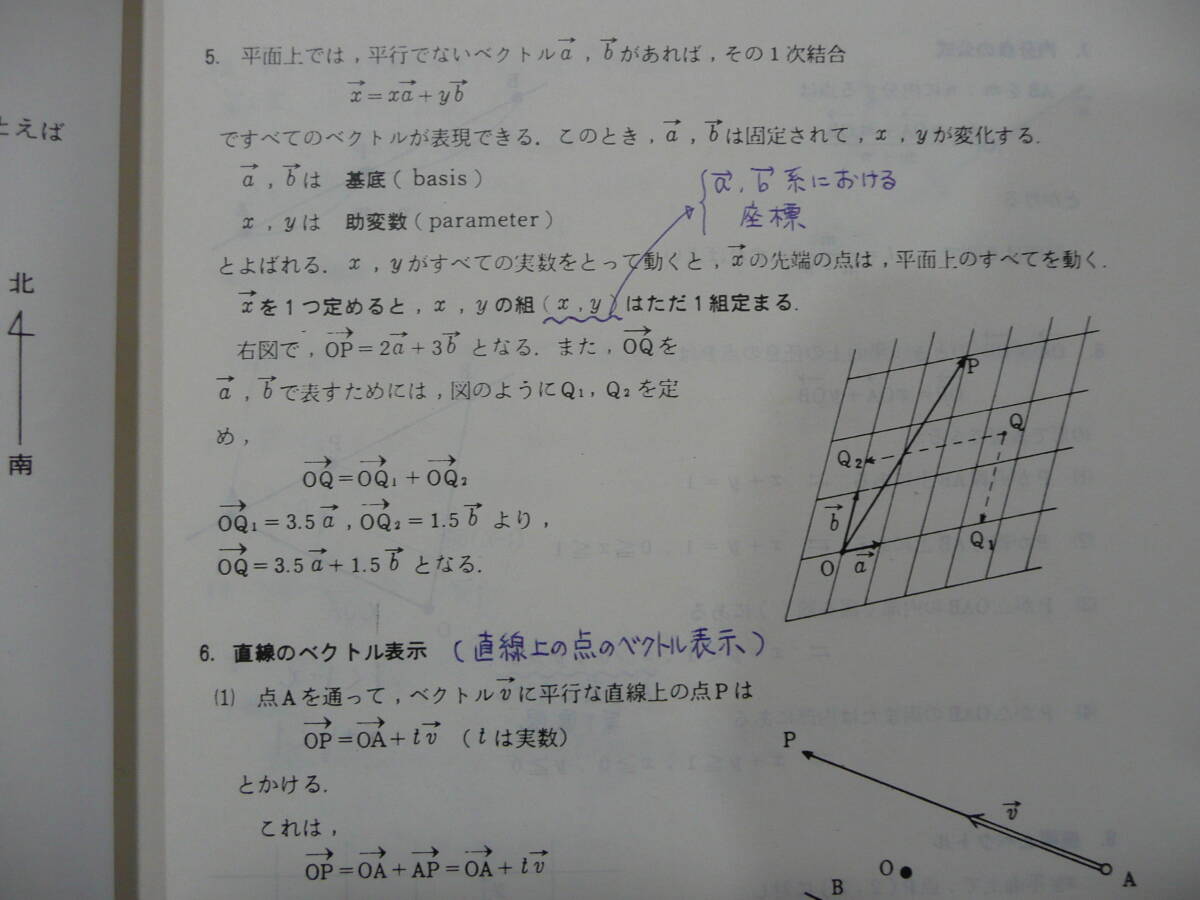 とえば
北
南
5. 平面上では，平行でないベクトル$\vec{a}$，$\vec{b}$があれば，その1次結合
$\vec{x}=x\vec{a}+y\vec{b}$
ですべてのベクトルが表現できる．このとき，$\vec{a}$，$\vec{b}$は固定されて，x，yが変化する．
$\vec{a}$，$\vec{b}$は 基底（basis）
x，yは 助変数（parameter）
$\vec{a}$，$\vec{b}$系における
座標
とよばれる．x，yがすべての実数をとって動くと，$\vec{x}$の先端の点は，平面上のすべてを動く．
$\vec{x}$を1つ定めると，x，yの組（x，y）はただ1組定まる．
右図で，$\overrightarrow{OP}=2\vec{a}+3\vec{b}$となる．また，$\overrightarrow{OQ}$を
$\vec{a}$，$\vec{b}$で表すためには，図のようにQ₁，Q₂を定
め，
$\overrightarrow{OQ}=\overrightarrow{OQ_1}+\overrightarrow{OQ_2}$
$\overrightarrow{OQ_1}=3.5\vec{a}$，$\overrightarrow{OQ_2}=1.5\vec{b}$より，
$\overrightarrow{OQ}=3.5\vec{a}+1.5\vec{b}$となる．
P
Q
Q₂
$\vec{b}$
Q₁
O
$\vec{a}$
6. 直線のベクトル表示（直線上の点のベクトル表示）
(1) 点Aを通って，ベクトル$\vec{v}$に平行な直線上の点Pは
$\overrightarrow{OP}=\overrightarrow{OA}+t\vec{v}$（tは実数）
とかける．
これは，
$\overrightarrow{OP}=\overrightarrow{OA}+\overrightarrow{AP}=\overrightarrow{OA}+t\vec{v}$
P
$\vec{v}$
O
A
B